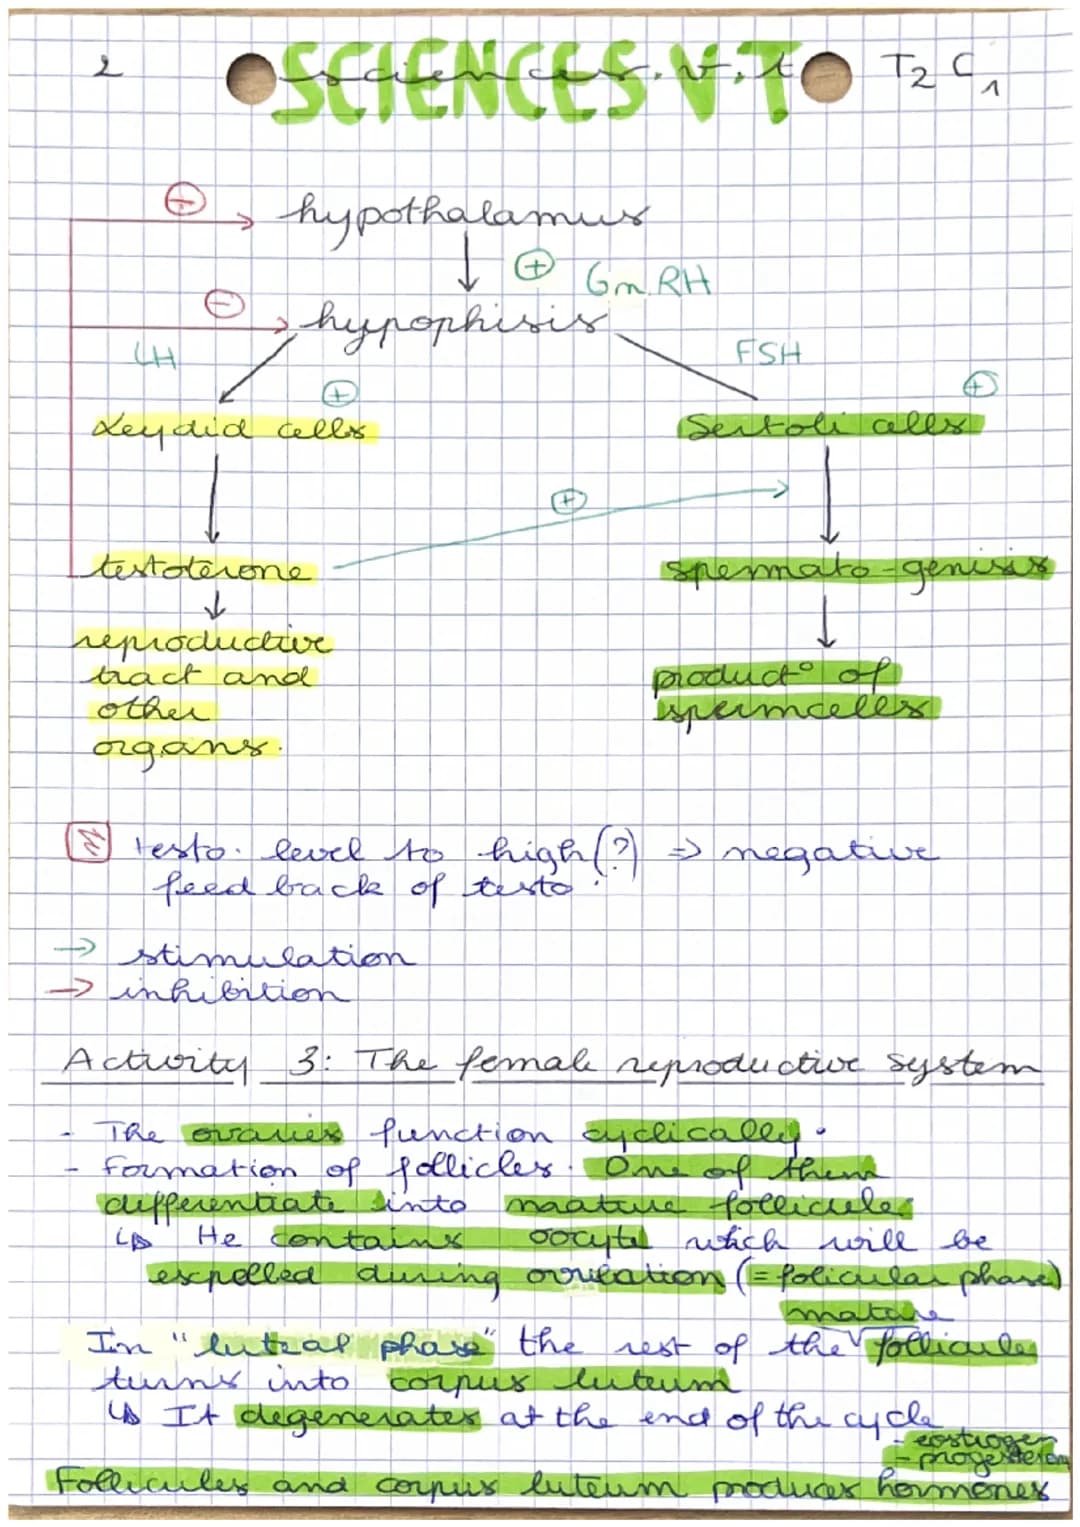 2 SCIENCES.V.T T2 C1
sciences.v.t
⊕ hypothalamus
⊕ GnRH
⊖ hypophisis
LH FSH
⊕ ⊕
Leydid cells Sertoli cells
⊕
testoterone spermato-genisis
reproductive
tract and product° of
other spermcells
organs.
testo. level to high (?) => negative
feed back of testo.
-> stimulation
-> inhibition
Activity 3: The female reproductive system
- The ovaries function cyclically.
- Formation of follicles. One of them
differentiate into maature follicules
↳ He contains oocyte which will be
expelled during ovulation (= folicular phase)
mature
In "luteal phase" the rest of the v follicules
turns into corpus luteum
↳ It degenerates at the end of the cycle
- eostrogen
- progesterone
Follicules and corpus luteum produces hormones